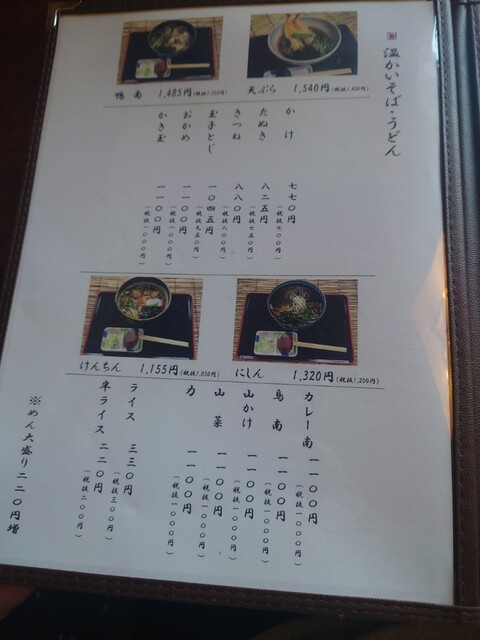 温かいそば・うどん
天ぷら 1,540円(税抜1,400円)
鴨南 1,485円(税抜1,350円)
かけ 七七〇円(税抜七〇〇円)
たぬき 八二五円(税抜七五〇円)
きつね 八八〇円(税抜八〇〇円)
玉子とじ 一〇四五円(税抜九五〇円)
おかめ 一一〇〇円(税抜一〇〇〇円)
かき玉 一一〇〇円(税抜一〇〇〇円)
にしん 1,320円(税抜1,200円)
けんちん 1,155円(税抜1,050円)
カレー南 一一〇〇円(税抜一〇〇〇円)
鳥南 一一〇〇円(税抜一〇〇〇円)
山かけ 一一〇〇円(税抜一〇〇〇円)
山菜 一一〇〇円(税抜一〇〇〇円)
力 一一〇〇円(税抜一〇〇〇円)
ライス 三三〇円(税抜三〇〇円)
半ライス 二二〇円(税抜二〇〇円)
※めん大盛り二二〇円増